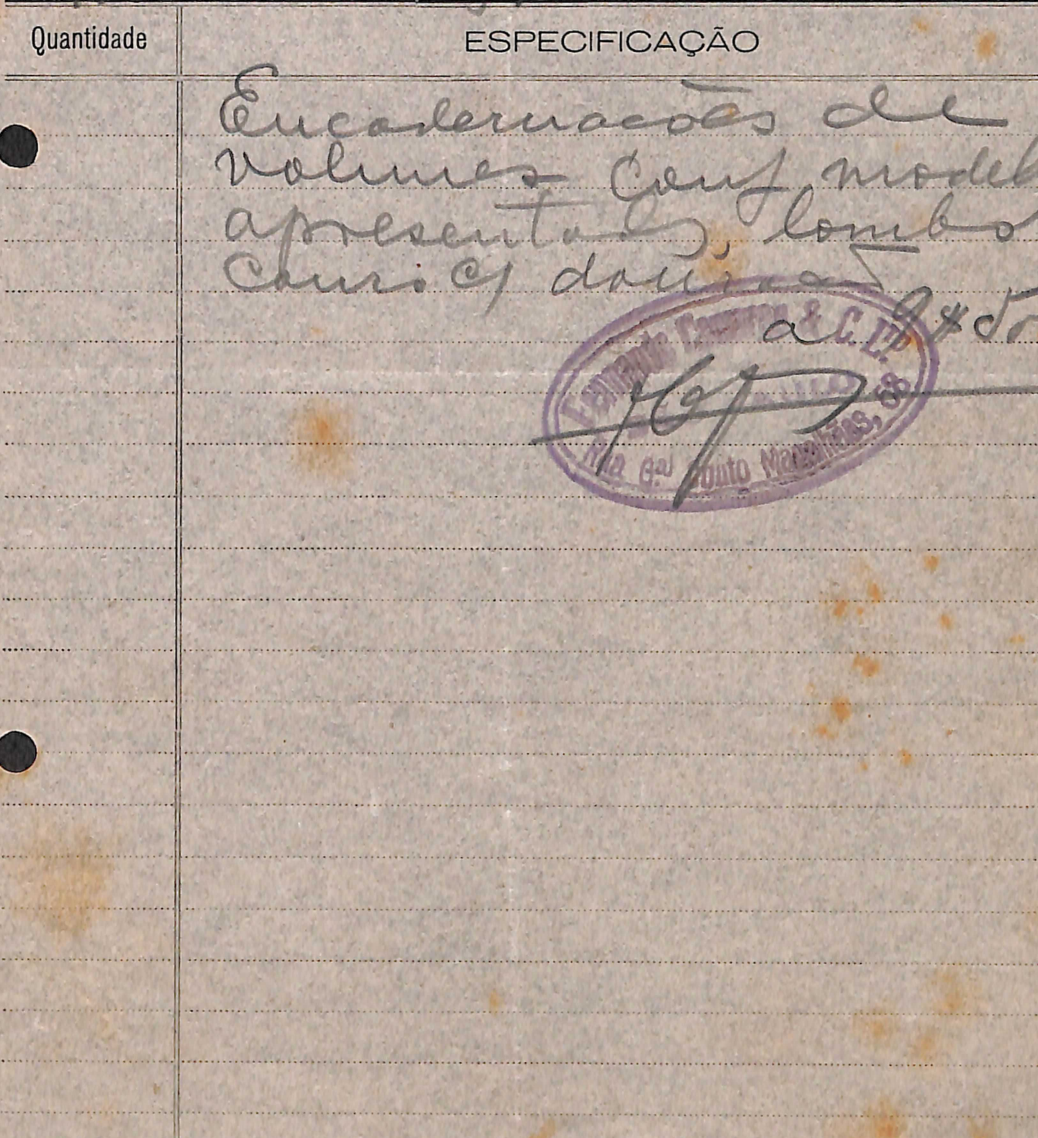 Quantidade ESPECIFICAÇÃO
Encadernacões de
volumes conf model
apresentado, lombo
Couro c/
a 9$50
& C. Lᴰᴬ
Rua Gᵃˡ Couto Magalhães, 68